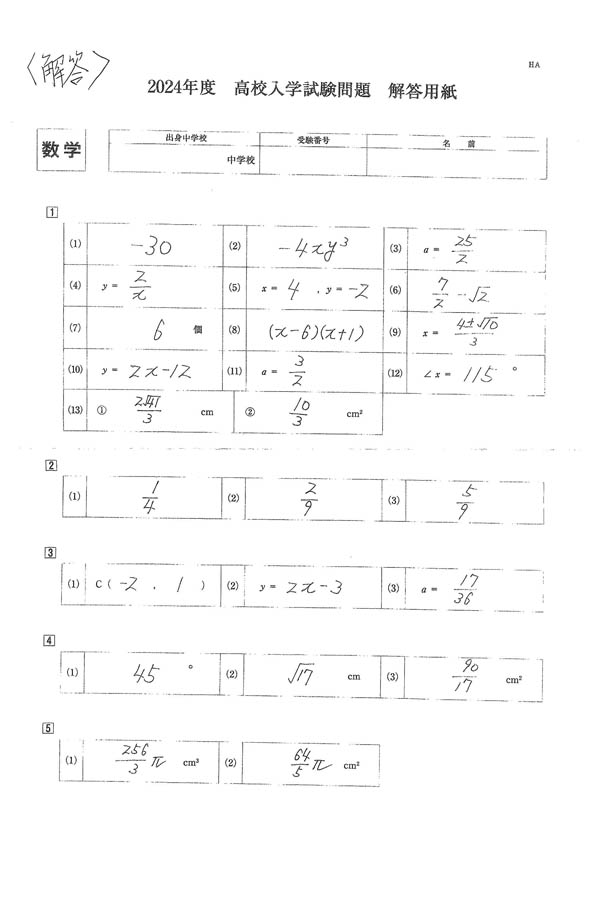 〈解答〉
HA
2024年度 高校入学試験問題 解答用紙
数学
出身中学校 受験番号 名 前
中学校
1
(1) -30 (2) -4xy³ (3) a = 25/2
(4) y = 2/x (5) x = 4 , y = -2 (6) 7/2 - √2
(7) 6 個 (8) (x-6)(x+1) (9) x = 4±√10/3
(10) y = 2x-12 (11) a = 3/2 (12) ∠x = 115°
(13) ① 2√41/3 cm ② 10/3 cm²
2
(1) 1/4 (2) 2/9 (3) 5/9
3
(1) C ( -2 , 1 ) (2) y = 2x-3 (3) a = 17/36
4
(1) 45° (2) √17 cm (3) 90/17 cm²
5
(1) 256/3 π cm³ (2) 64/5 π cm²